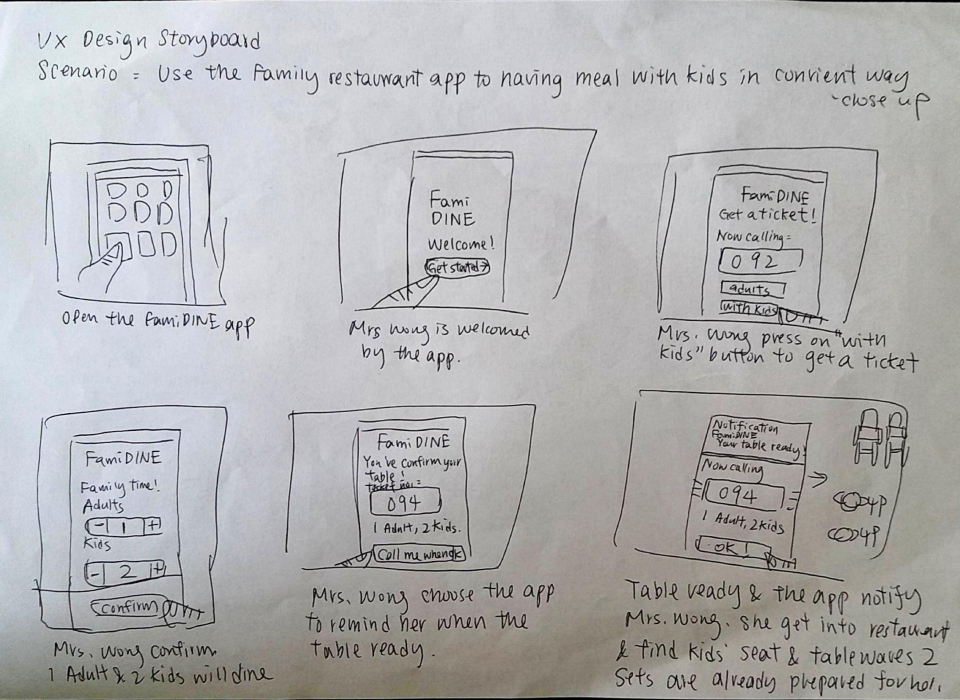 UX Design Storyboard
Scenario = Use the Family restaurant app to having meal with kids in convient way
-close up
Open the FamiDINE app
Fami
DINE
Welcome!
Get started→
Mrs Wong is welcomed
by the app.
FamiDINE
Get a ticket!
Now calling =
092
adults
with kids
Mrs. Wong press on "with
kids" button to get a ticket
FamiDINE
Family time!
Adults
- 1 +
Kids
- 2 +
Confirm
Mrs. Wong confirm
1 Adult & 2 kids will dine
FamiDINE
You've confirm your
table!
Ticket no.=
094
1 Adult, 2 kids.
Call me when
Mrs. Wong choose the app
to remind her when the
table ready.
Notification
FamiDINE
Your table ready!
Now calling
094
1 Adult, 2 kids
OK!
Table ready & the app notify
Mrs. Wong. She get into restaurant
& find kids' seat & tablewares 2
sets are already prepared for her.